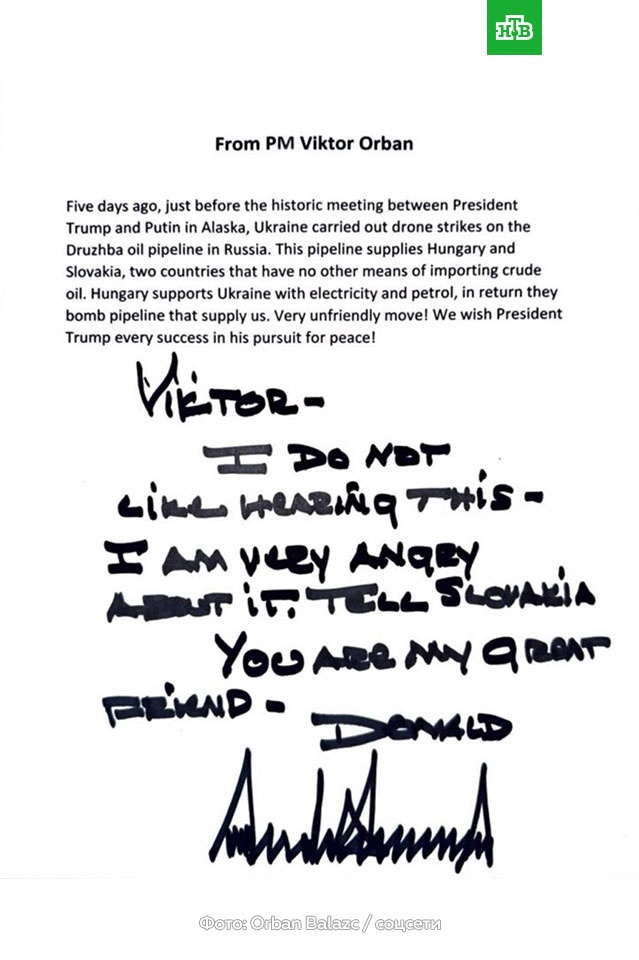 НТВ
From PM Viktor Orban
Five days ago, just before the historic meeting between President
Trump and Putin in Alaska, Ukraine carried out drone strikes on the
Druzhba oil pipeline in Russia. This pipeline supplies Hungary and
Slovakia, two countries that have no other means of importing crude
oil. Hungary supports Ukraine with electricity and petrol, in return they
bomb pipeline that supply us. Very unfriendly move! We wish President
Trump every success in his pursuit for peace!
VIKTOR –
I DO NOT
LIKE HEARING THIS –
I AM VERY ANGRY
ABOUT IT. TELL SLOVAKIA
YOU ARE MY GREAT
FRIEND – DONALD
Фото: Orban Balazc / соцсети